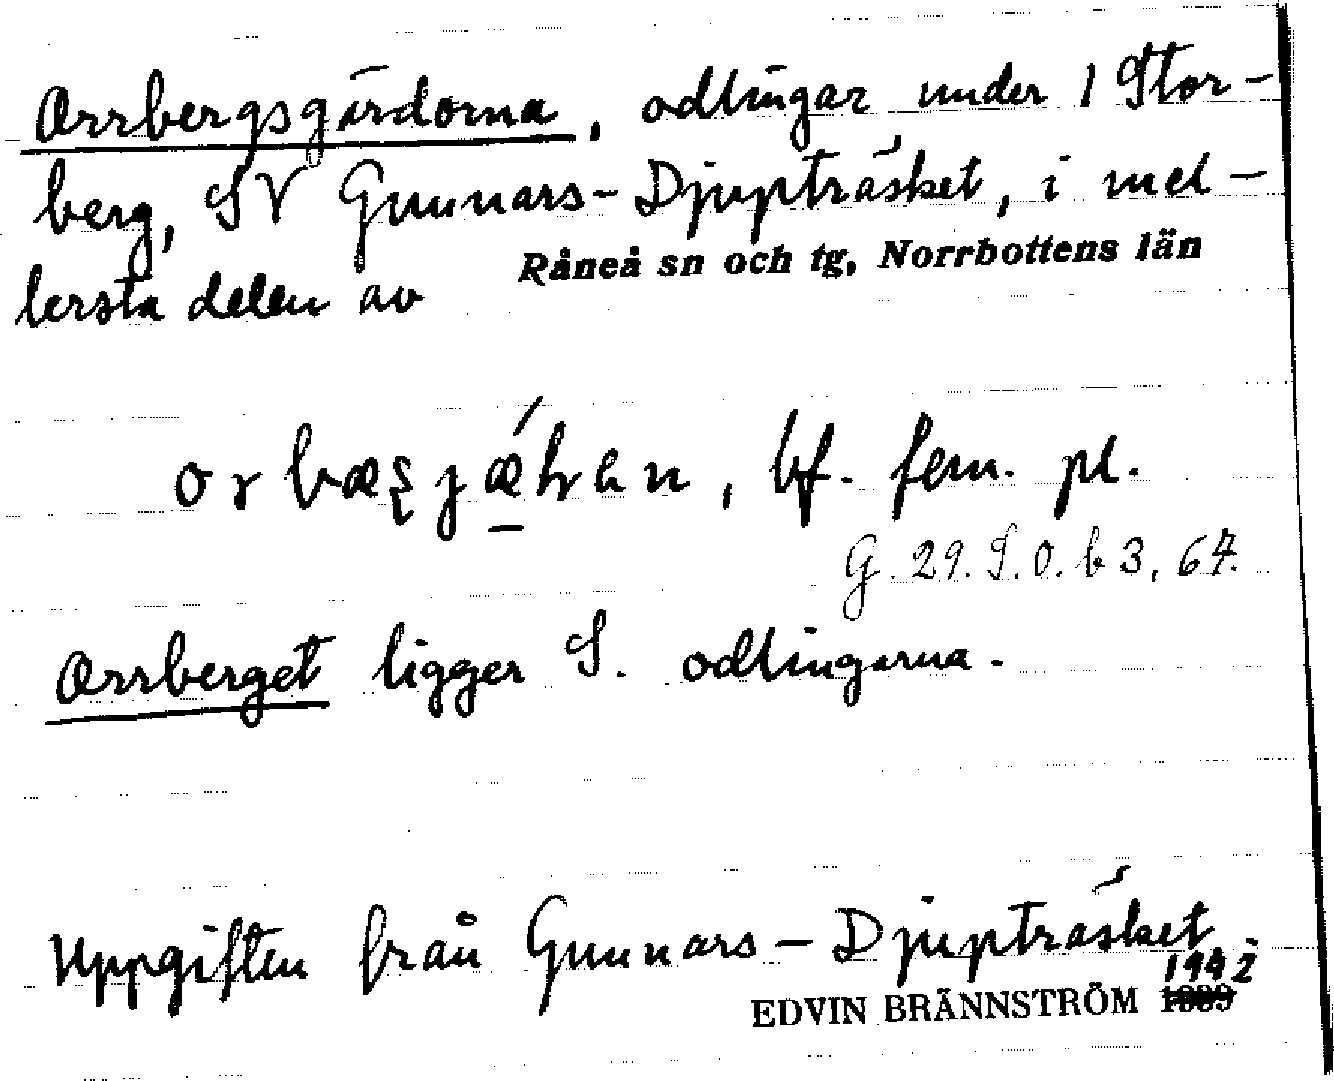 Orrbergsgärdorna, odlingar under 1 Stor-
berg, SV Gunnars-Djupträsket, i mel-
lersta delen av
Råneå sn och tg, Norrbottens län
bf. fem. pl.
G. 29. S. O. b 3, 67.
Orrberget ligger S. odlingarna.
Uppgiften från Gunnars-Djupträsket
EDVIN BRÄNNSTRÖM 1942